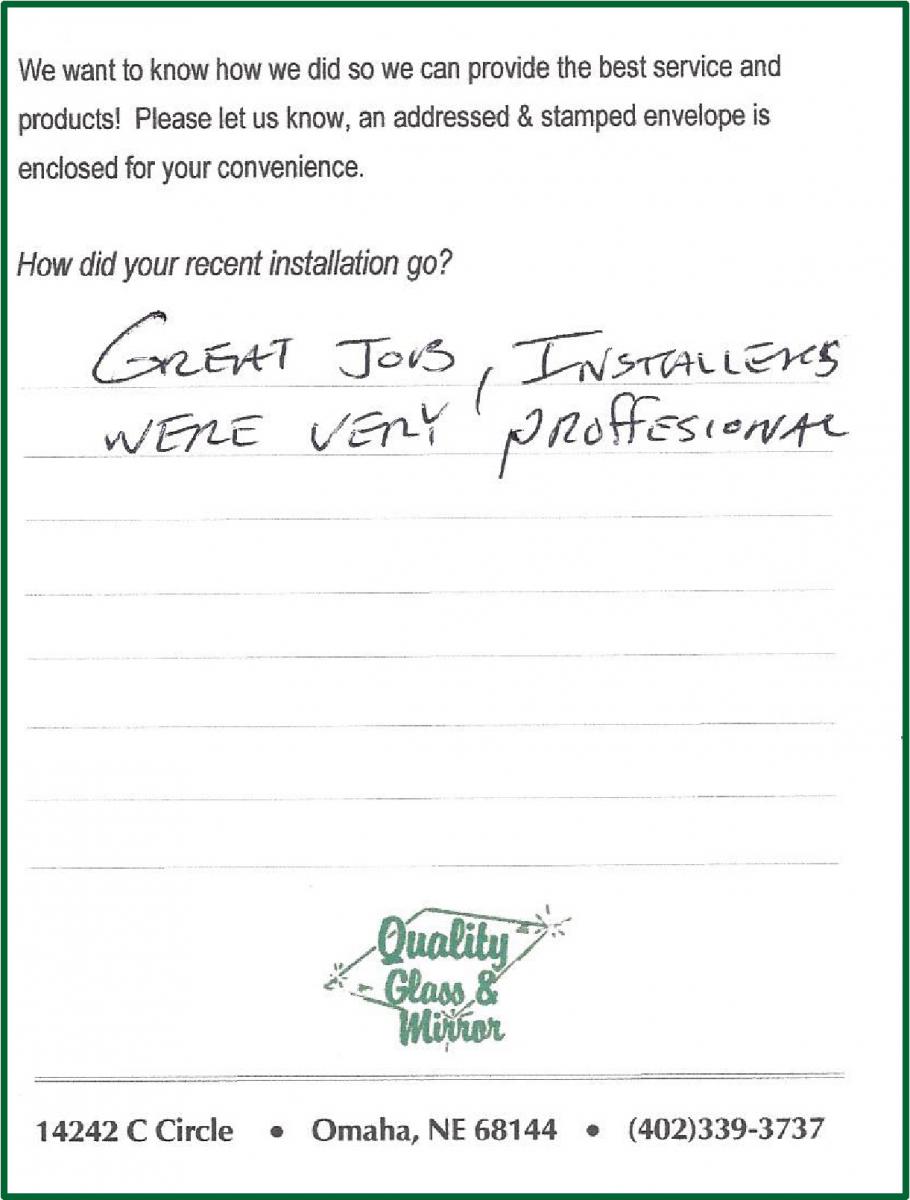 We want to know how we did so we can provide the best service and
products! Please let us know, an addressed & stamped envelope is
enclosed for your convenience.
How did your recent installation go?
GREAT JOB, INSTALLERS
WERE VERY PROFFESIONAL
Quality
Glass &
Mirror
14242 C Circle • Omaha, NE 68144 • (402)339-3737